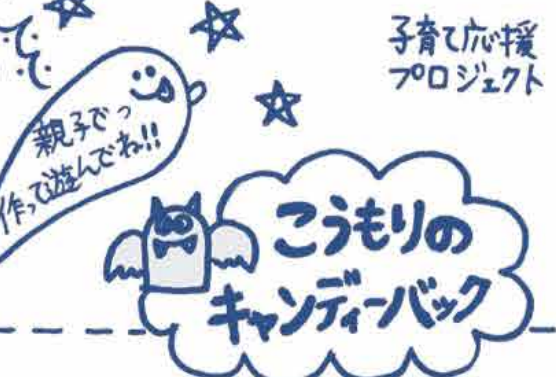 子育て応援
プロジェクト
親子でっ
作って遊んでね!!
こうもりの
キャンディーバック